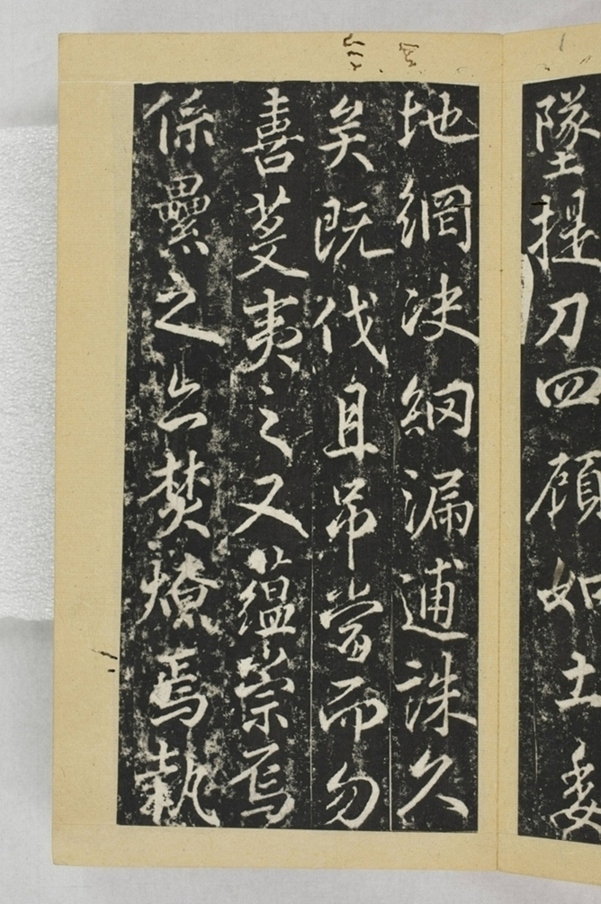 墜提刀四顧如土委
地網決網漏逋誅久
矣既伐且吊當而勿
喜芟夷之又蘊崇焉
係纍之亦焚燎焉執